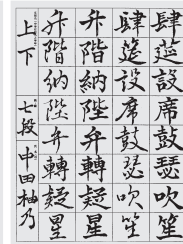 肆筵設席鼓瑟吹笙
肆筵設席鼓瑟吹笙
升階納陛弁轉疑星
升階納陛弁轉疑星
上下 七段 中田柚乃